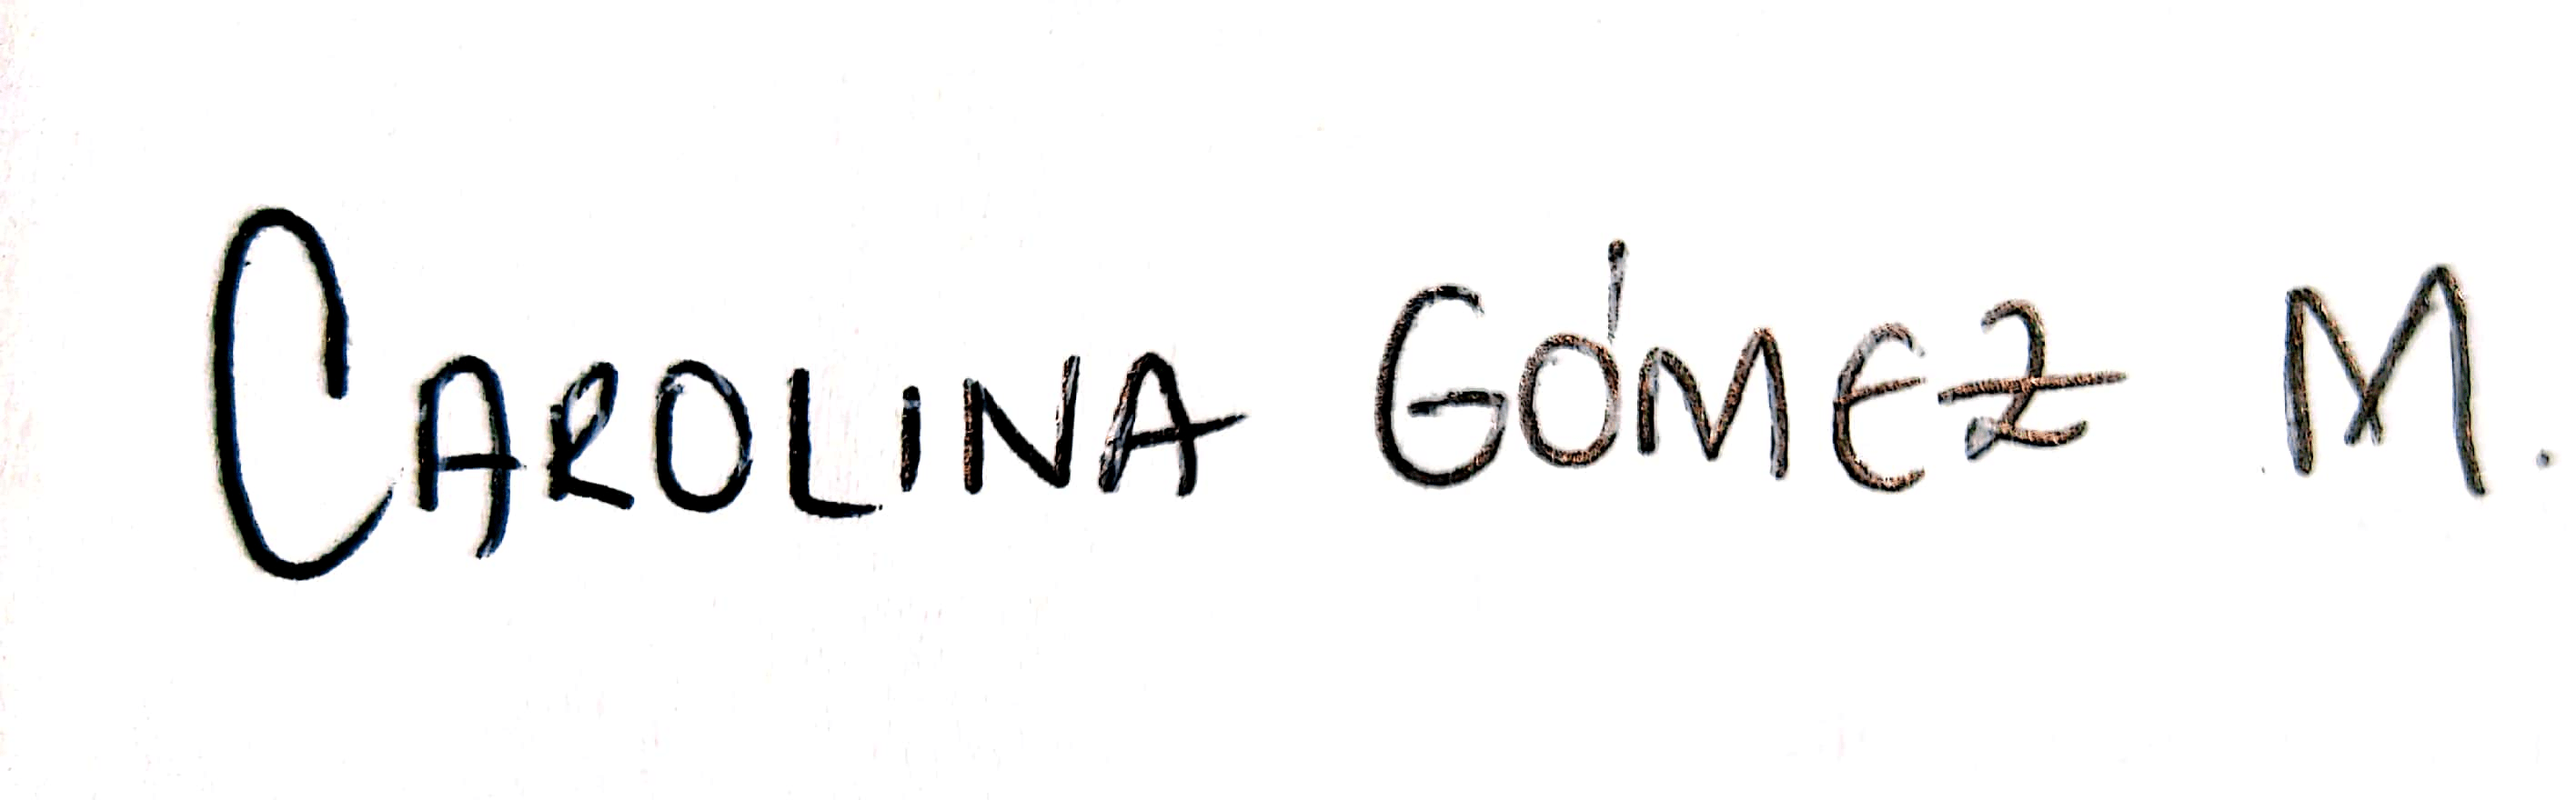 CAROLINA GÓMEZ M.